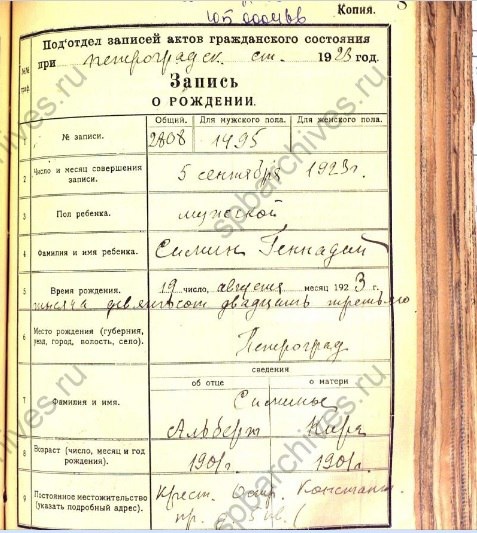 Копия.
Под'отдел записей актов гражданского состояния
при Петроградск. ст. 1923 год.
Запись
О РОЖДЕНИИ.
№№ граф.
Общий. Для мужского пола. Для женского пола.
1 № записи. 2808 1495
2 Число и месяц совершения записи. 5 сентября 1923 г.
3 Пол ребенка. мужской
4 Фамилия и имя ребенка. Геннадий
5 Время рождения. 19 число, августа месяц 1923 г.
тысяча девятьсот двадцать третьего
6 Место рождения (губерния, уезд, город, волость, село). Петроград
сведения
об отце о матери
7 Фамилия и имя.
Альберт
8 Возраст (число, месяц и год рождения). 1901 г. 1901 г.
9 Постоянное местожительство (указать подробный адрес). Крест. Остр. Константин.
пр.
spbarchives.ru